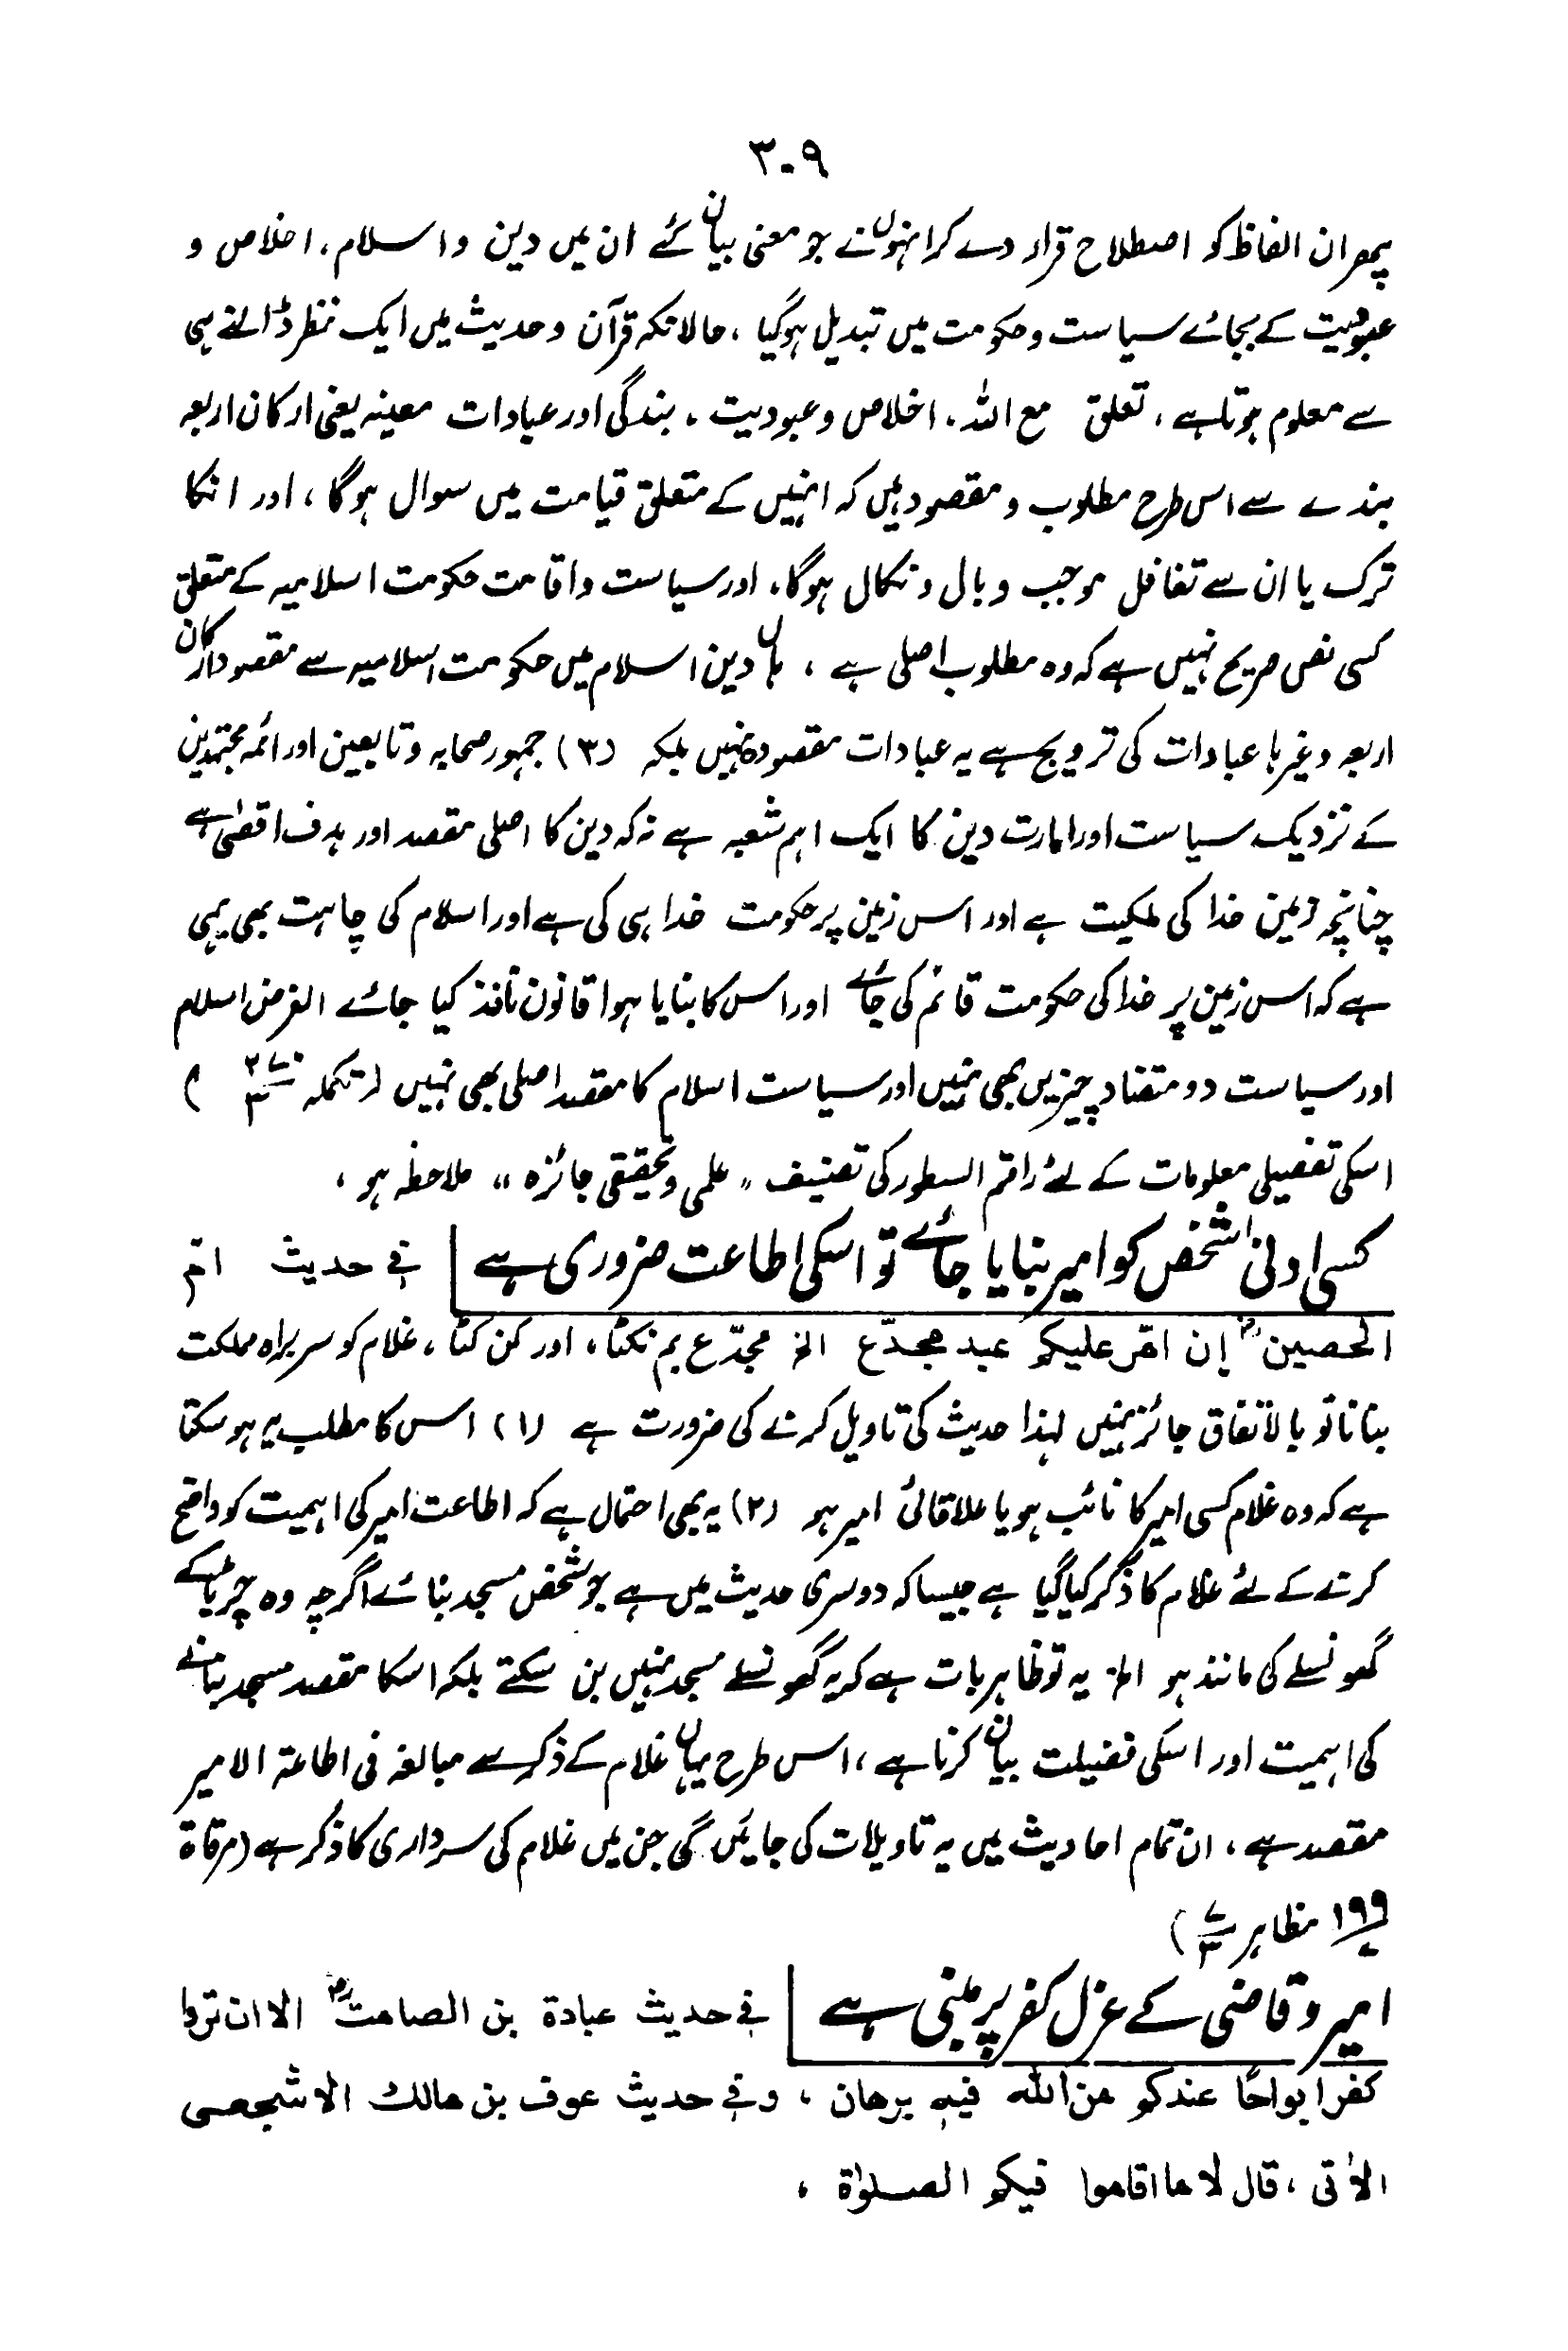 ۳۰۹
پھر ان الفاظ کو اصطلاح قرار دے کر انہوں نے جو معنی بیان کئے ان میں دین و اسلام، اخلاص و
عبودیت کے بجائے سیاست و حکومت میں تبدیل ہوگیا ، حالانکہ قرآن و حدیث میں ایک نظر ڈالنے ہی
سے معلوم ہوتا ہے ، تعلق مع اللہ ، اخلاص و عبودیت ، بندگی اور عبادات معینہ یعنی ارکان اربعہ
بندے سے اس طرح مطلوب و مقصود ہیں کہ انہیں کے متعلق قیامت میں سوال ہوگا ، اور انکا
ترک یا ان سے تغافل موجب وبال و نکال ہوگا ، اور سیاست و اقامت حکومت اسلامیہ کے متعلق
کسی نص صریح نہیں ہے کہ وہ مطلوب اصلی ہے ، ہاں دین اسلام میں حکومت اسلامیہ سے مقصود ارکان
اربعہ و غیرہا عبادات کی ترویج ہے یہ عبادات مقصودہ نہیں بلکہ (۳) جمہور صحابہ و تابعین اور ائمہ مجتہدین
کے نزدیک سیاست اور امارت دین کا ایک اہم شعبہ ہے نہ کہ دین کا اصلی مقصد اور ہدف اقصیٰ ہے
چنانچہ زمین خدا کی ملکیت ہے اور اس زمین پر حکومت خدا ہی کی ہے اور اسلام کی چاہت بھی یہی
ہے کہ اس زمین پر خدا کی حکومت قائم کی جائے اور اس کا بنایا ہوا قانون نافذ کیا جائے الغرض اسلام
اور سیاست دو متضاد چیزیں بھی نہیں اور سیاست اسلام کا مقصد اصلی بھی نہیں (تکملہ ۲۷۰/۳ )
اسکی تفصیلی معلومات کے لئے راقم السطور کی تصنیف " علمی و تحقیقی جائزہ " ملاحظہ ہو ،
کسی ادنیٰ شخص کو امیر بنایا جائے تو اسکی اطاعت ضروری ہے | فی حدیث ام
الحصین رض إن امّر علیکم عبد مجدّع الخ مجدّع بم نکٹا ، اور کن کٹا ، غلام کو سربراہ مملکت
بنانا تو بالاتفاق جائز نہیں لہذا حدیث کی تاویل کرنے کی ضرورت ہے (۱) اس کا مطلب یہ ہوسکتا
ہے کہ وہ غلام کسی امیر کا نائب ہو یا علاقائی امیر ہو (۲) یہ بھی احتمال ہے کہ اطاعت امیر کی اہمیت کو واضح
کرنے کے لئے غلام کا ذکر کیا گیا ہے جیسا کہ دوسری حدیث میں ہے جو شخص مسجد بنائے اگرچہ وہ چڑیا کے
گھونسلے کی مانند ہو الخ یہ تو ظاہر بات ہے کہ یہ گھونسلے مسجد نہیں بن سکتے بلکہ اسکا مقصد مسجد بنانے
کی اہمیت اور اسکی فضیلت بیان کرنا ہے ، اس طرح یہاں غلام کے ذکر سے مبالغہ فی اطاعۃ الامیر
مقصد ہے ، ان تمام احادیث میں یہ تاویلات کی جائیں گی جن میں غلام کی سرداری کا ذکر ہے (مرقاۃ
۱۹۹/۷ مظاہر ۷/۳)
امیر و قاضی کے عزل کفر پر مبنی ہے | فی حدیث عبادۃ بن الصامت رض الا ان تروا
کفرا بواحًا عندکم من اللہ فیہ برھان ، وفی حدیث عوف بن مالک الاشجعی
الآتی ، قال لا ما اقاموا فیکم الصلوٰۃ ،